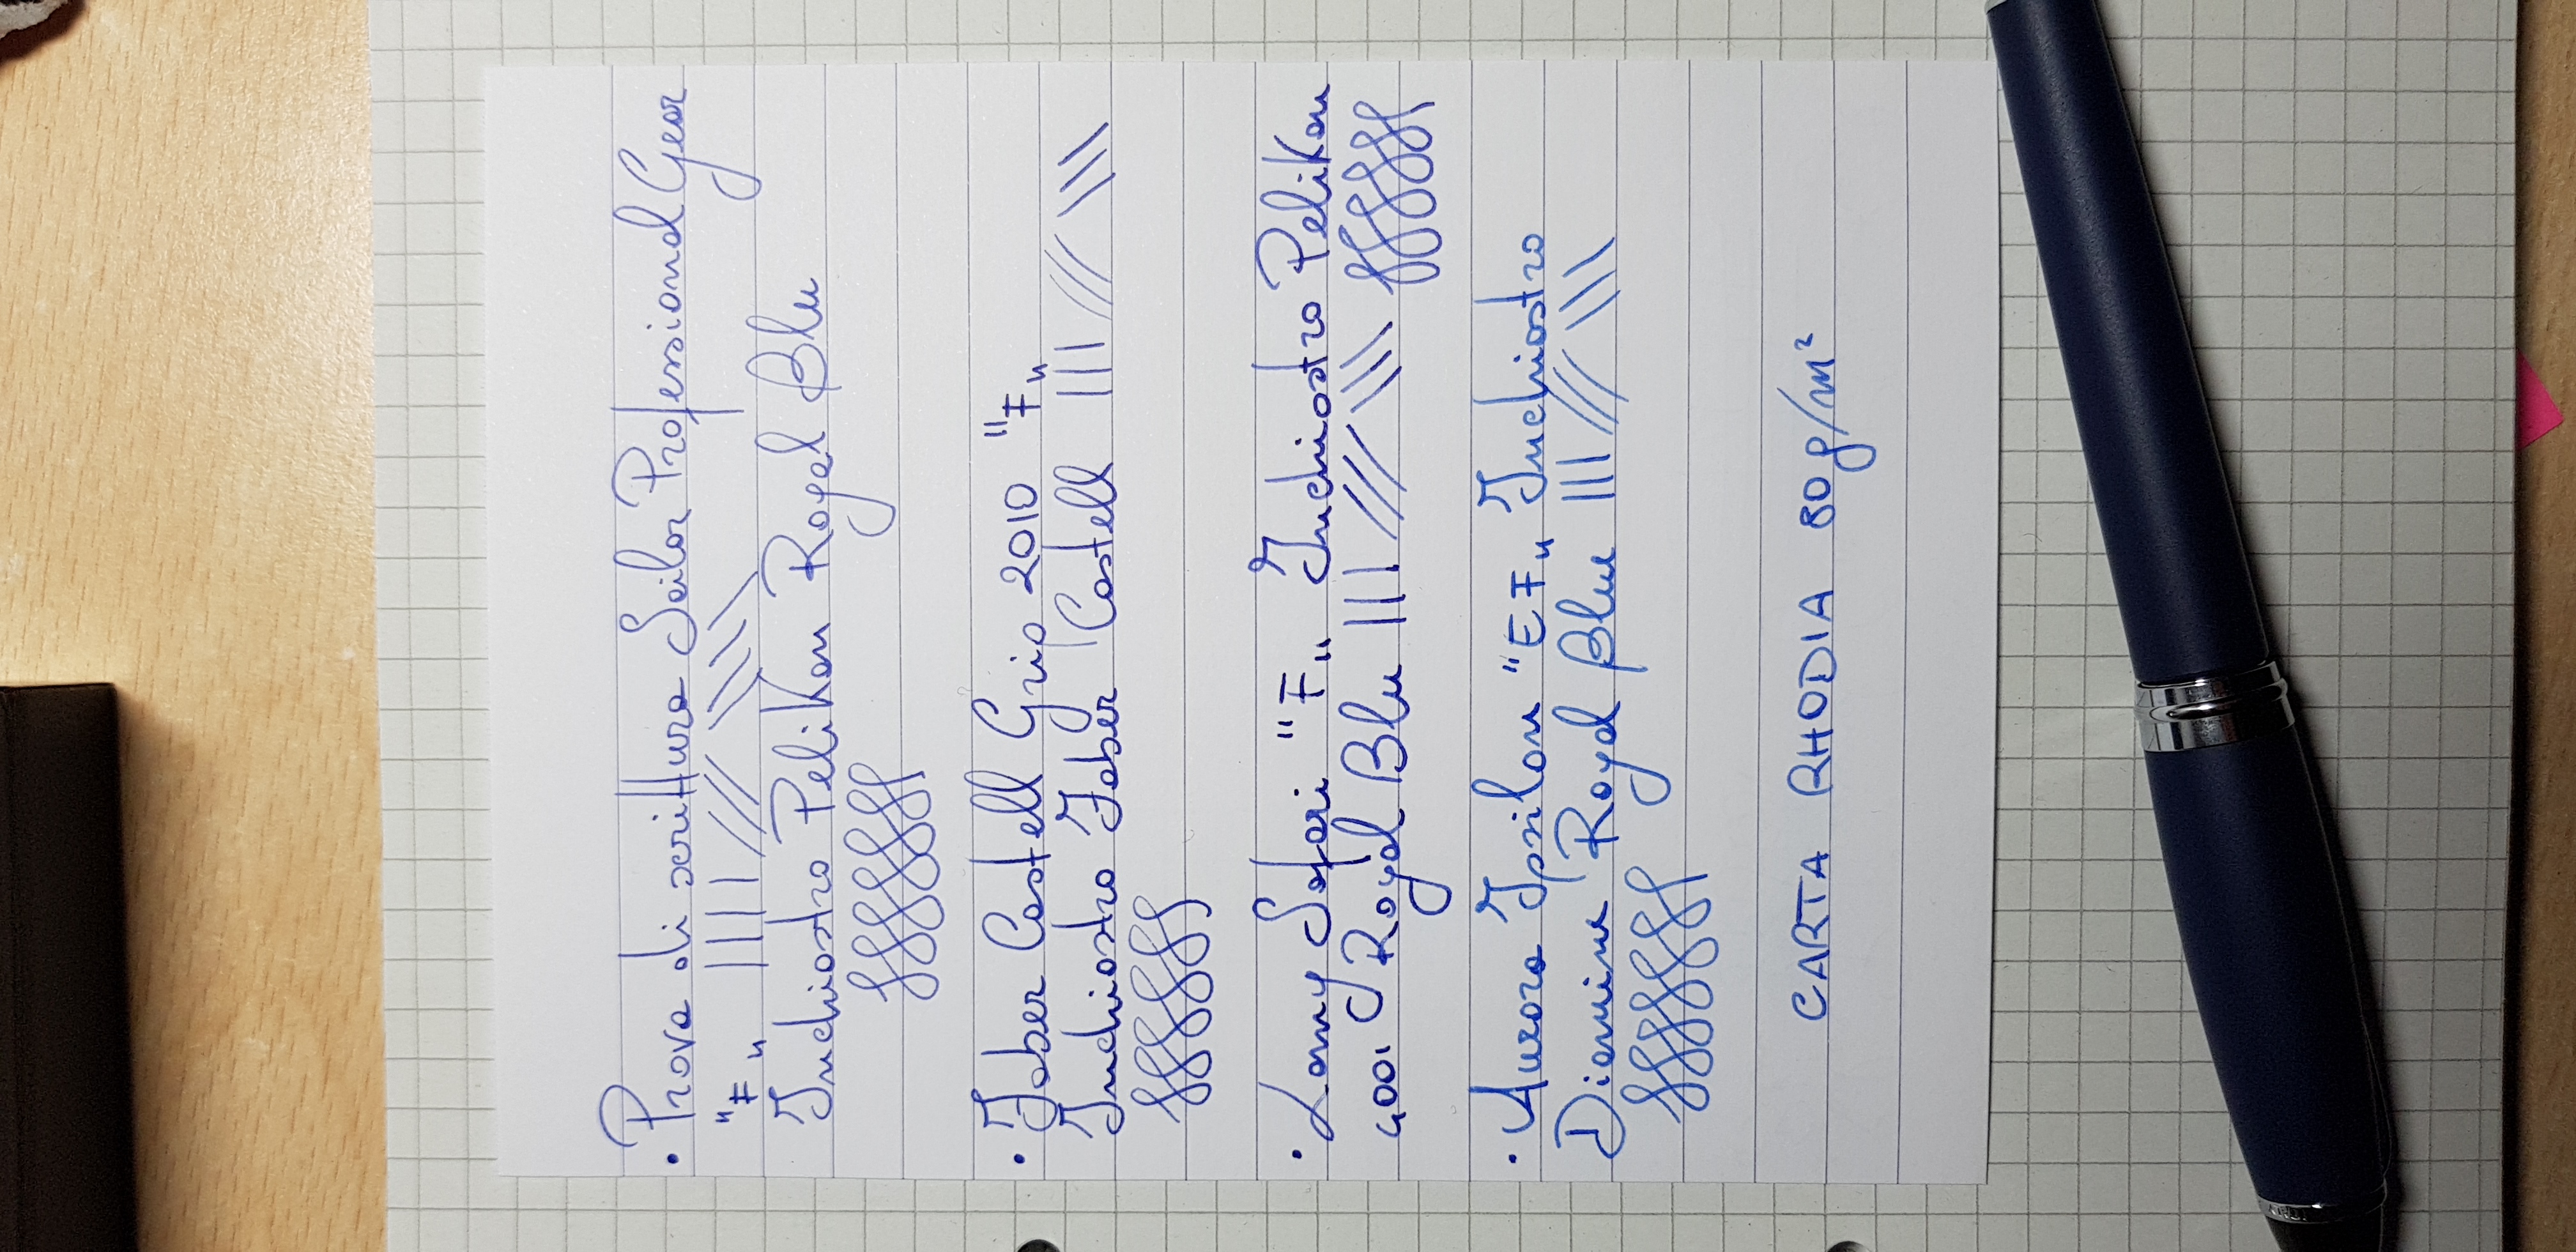 • Prova di scrittura Sailor Professional Gear
"F"
Inchiostro Pelikan Royal Blu
• Faber Castell Grip 2010 "F"
Inchiostro Faber Castell
• Lamy Safari "F" Inchiostro Pelikan
4001 Royal Blu
• Aurora Ipsilon "EF" Inchiostro
Diamine Royal Blu
CARTA RHODIA 80 g/m²